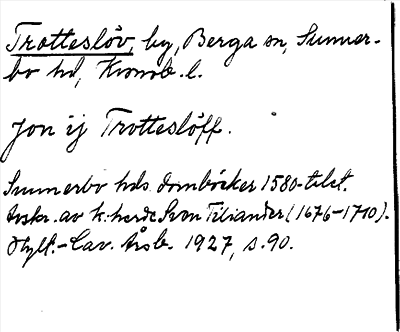 Trotteslöv, by, Berga sn, Sunner-
bo hd, Kronob. l.
Jon ij Trotteslöff.
Sunnerbo hds domböcker 1580-talet.
Avskr. av k. herde Sven Tiliander (1676-1710).
Hylt.-Cav. årsb. 1927, s. 90.